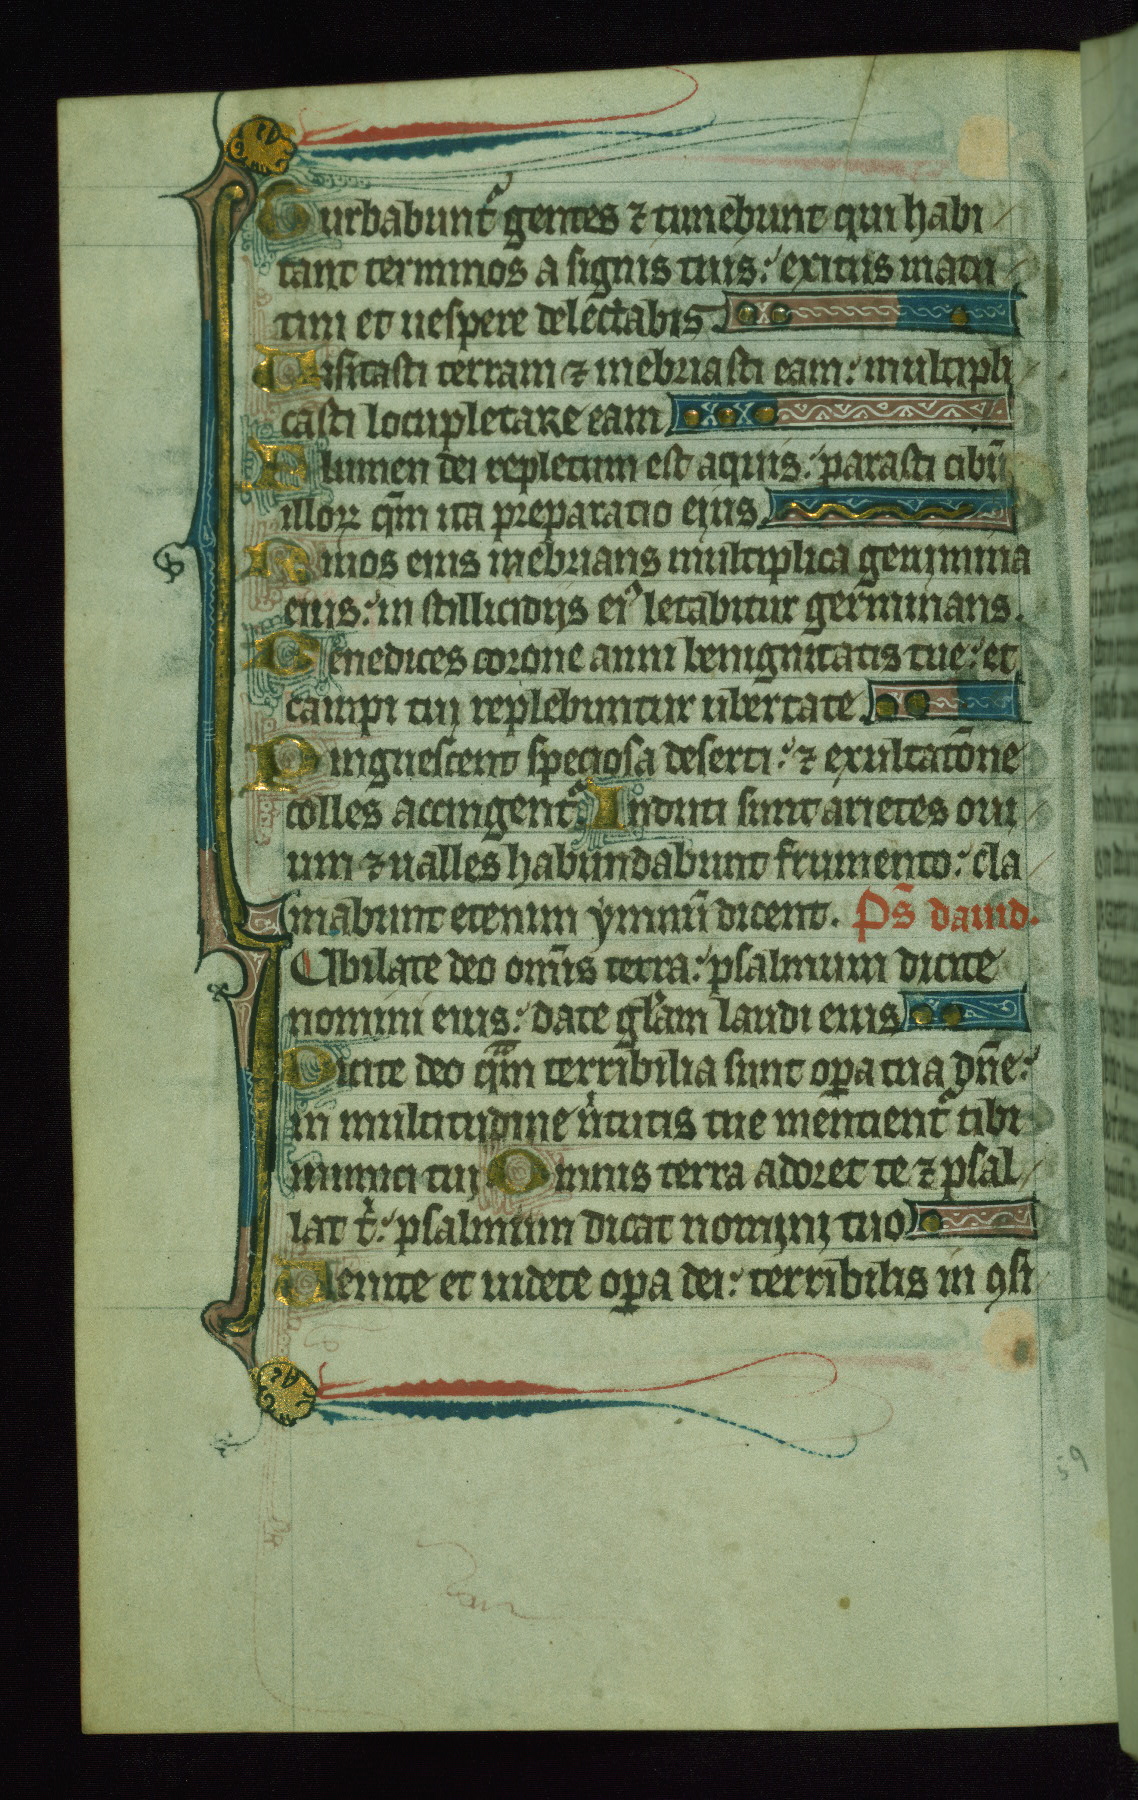 Turbabunt᷑ gentes ⁊ timebunt qui habi
tant terminos a signis tuis: exitus matu
tini et uespere delectabis.
Uisitasti terram ⁊ inebriasti eam: multipli
casti locupletare eam
Flumen dei repletum est aquis: parasti cibū
illoꝝ qm̄ ita preparatio eius
Riuos eius inebrians multiplica genimina
eius: in stillicidijs ei⁹ letabitur germinans.
Benedices corone anni benignitatis tue: et
campi tui replebuntur ubertate.
Pinguescent speciosa deserti: ⁊ exultatōne
colles accingent᷑ Induti sunt arietes oui
um ⁊ ualles habundabunt frumento: cla
mabunt etenim ymnū dicent. Ps̄ dauid.
Iubilate deo om̄is terra: psalmum dicite
nomini eius: date gl̄am laudi eius
Dicite deo qᵃm terribilia sunt oꝑa tua dn̄e:
in multitudine uͥtutis tue mentient᷑ tibi
inimici tui Omnis terra adoret te ⁊ psal
lat tͥ: psalmum dicat nomini tuo
Uenite et uidete oꝑa dei: terribilis in ꝯsi
59